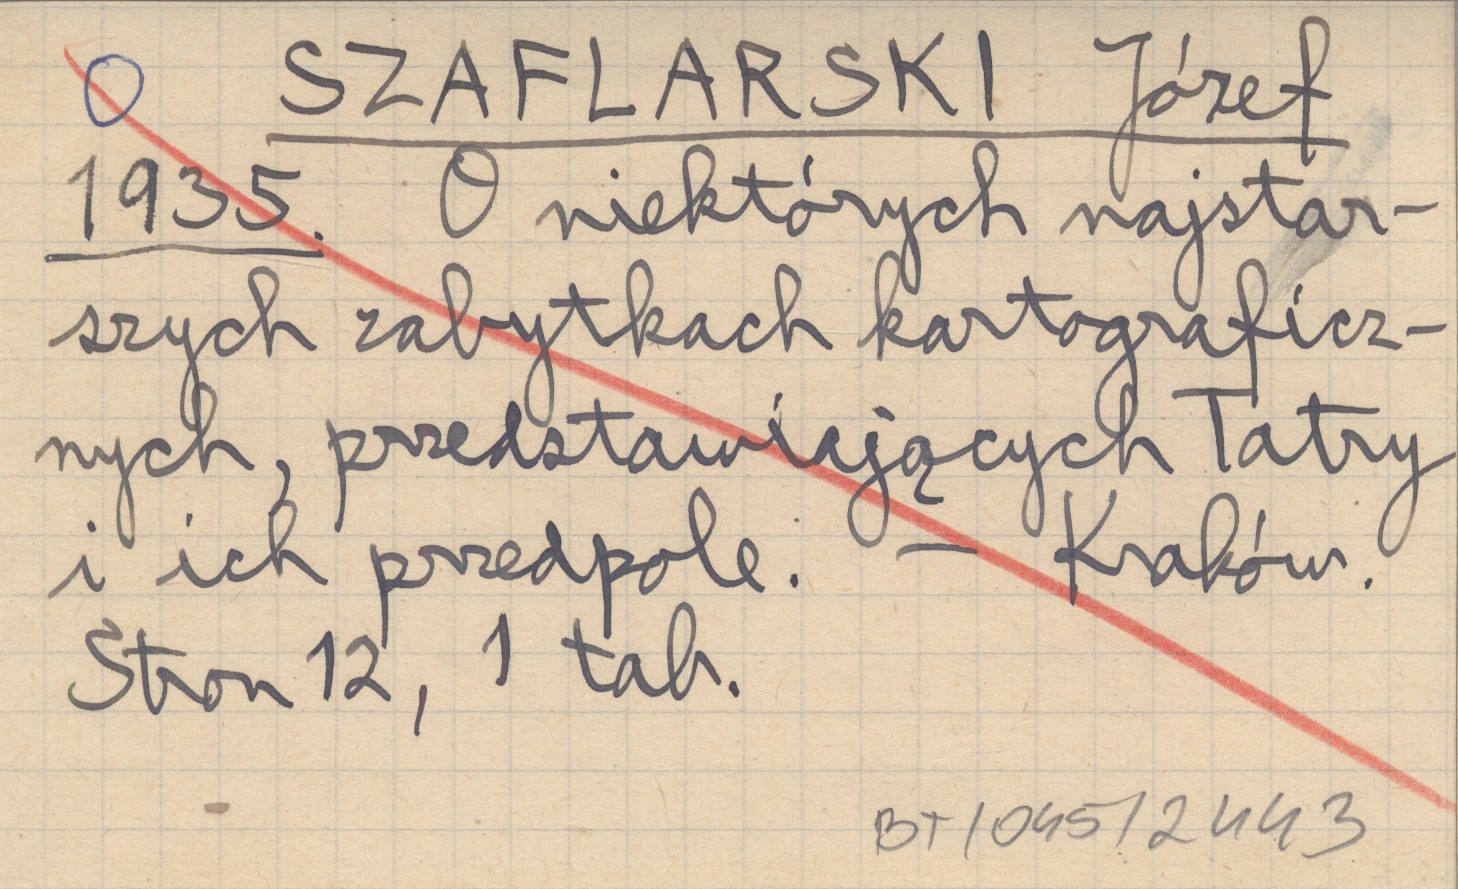 O SZAFLARSKI Józef
1935. O niektórych najstar-
szych zabytkach kartograficz-
nych, przedstawiających Tatry
i ich przedpole. — Kraków.
Stron 12, 1 tab.
BT/045/2443